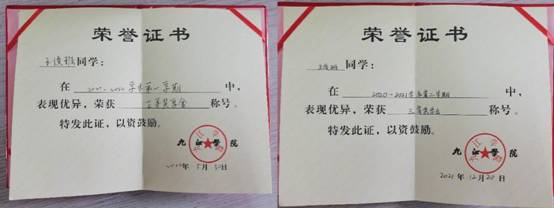 荣誉证书
同学：
在 学年第一学期 中，
表现优异，荣获 奖学金 称号。
特发此证，以资鼓励。
九江学院
年5月 日
荣誉证书
同学：
在 2020-2021学年第二学期 中，
表现优异，荣获 三等奖学金 称号。
特发此证，以资鼓励。
九江学院
2021年12月20日